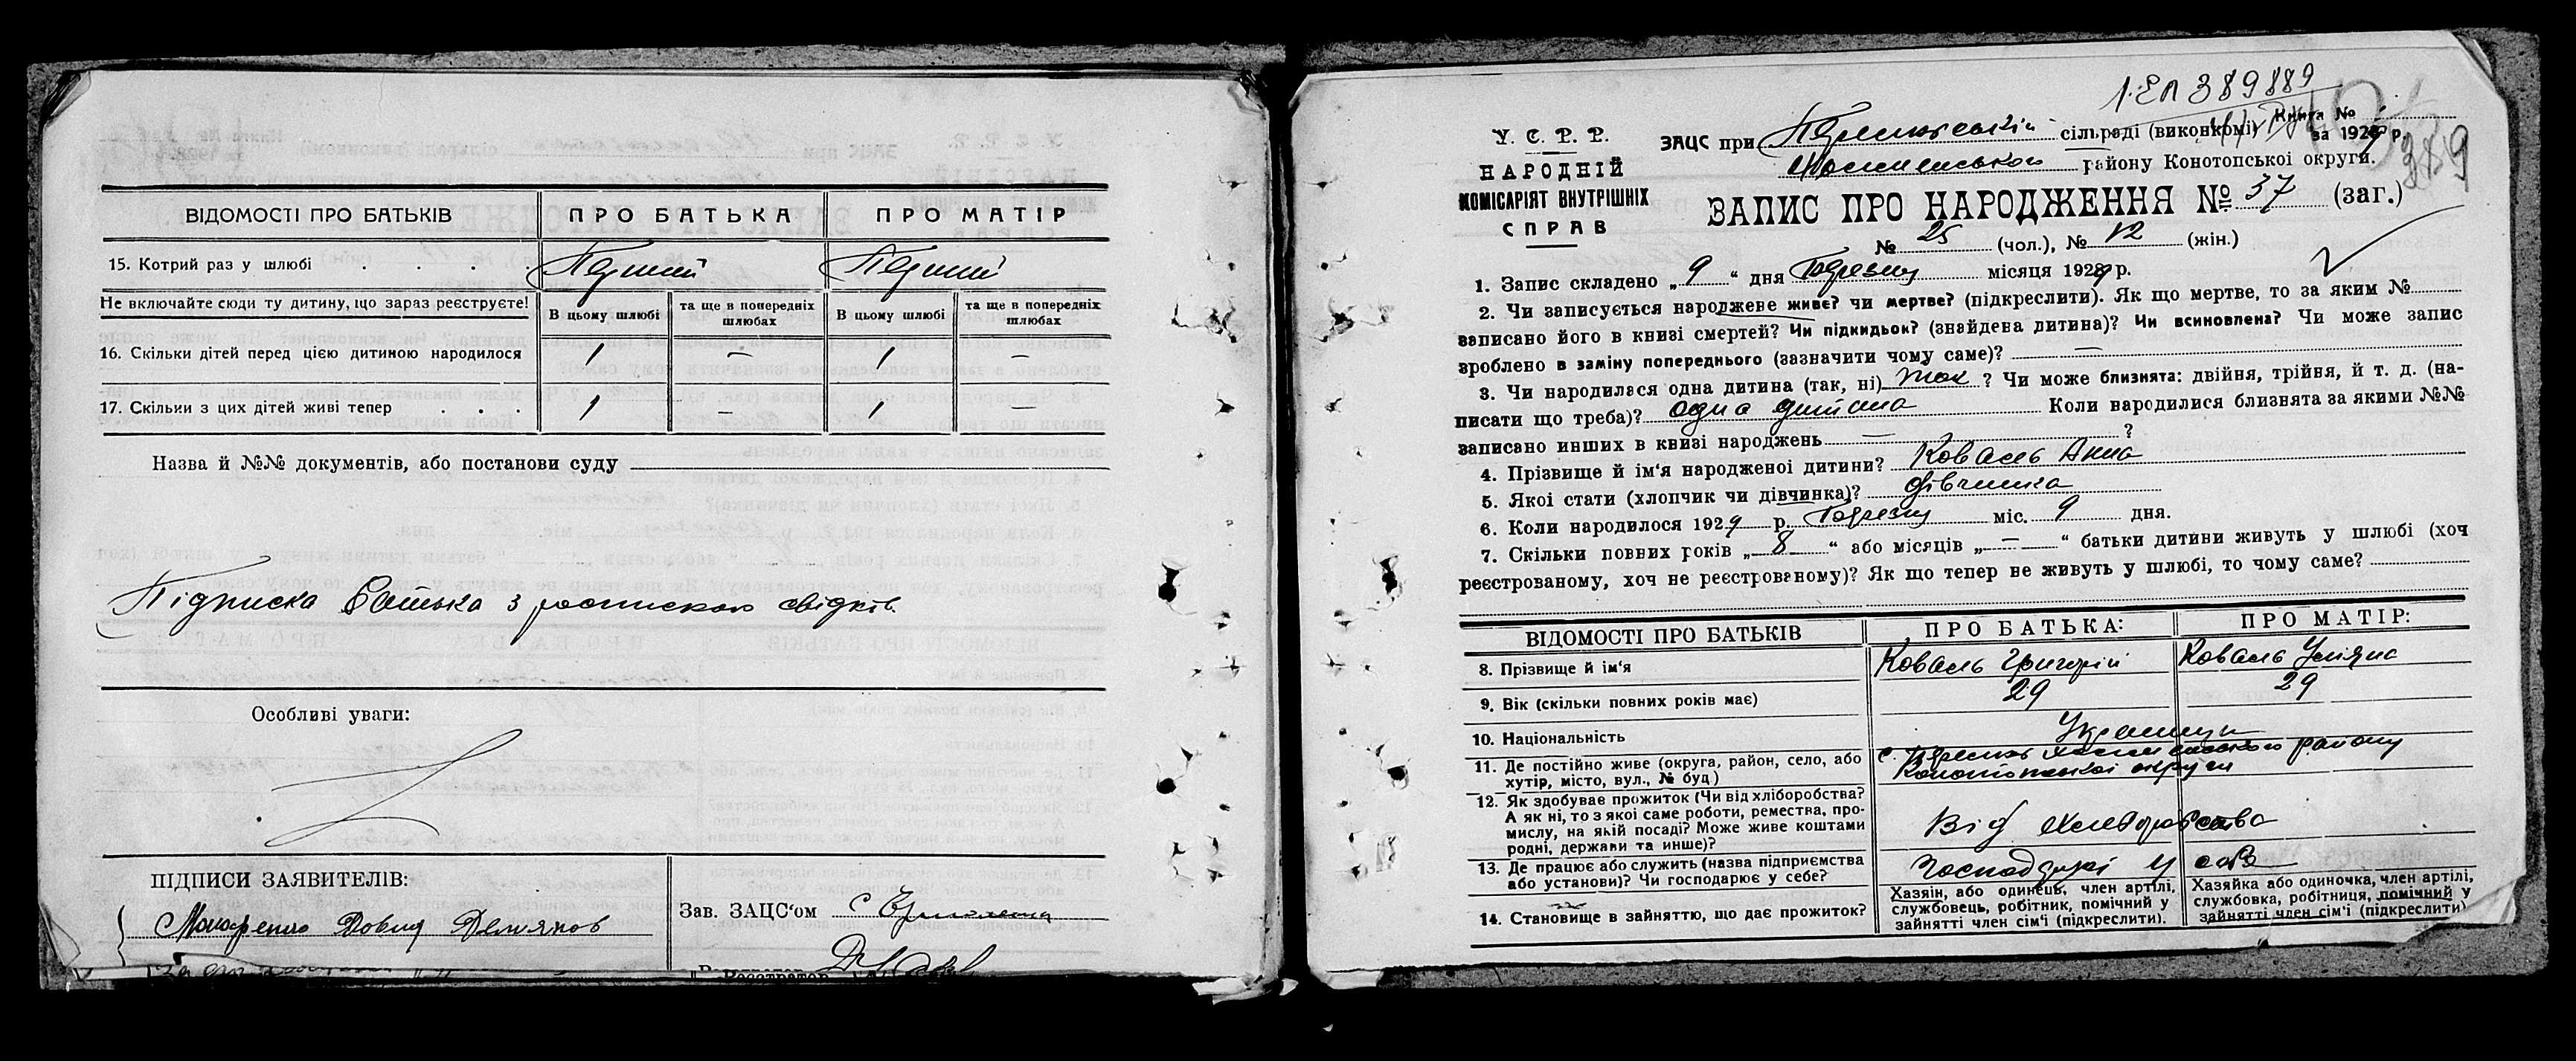 ВІДОМОСТІ ПРО БАТЬКІВ ПРО БАТЬКА ПРО МАТІР
15. Котрий раз у шлюбі . . . . Перший Перший
Не включайте сюди ту дитину, що зараз реєструєте! В цьому шлюбі та ще в попередніх шлюбах В цьому шлюбі та ще в попередніх шлюбах
16. Скільки дітей перед цією дитиною народилося 1 — 1 —
17. Скільки з цих дітей живі тепер . . . 1 — 1 —
Назва й №№ документів, або постанови суду
Підписка батька з роспискою свідків.
Особливі уваги:
ПІДПИСИ ЗАЯВИТЕЛІВ:
Зав. ЗАЦС'ом
Макаренко Довид Демянов
Реєстратор
1·ЕП 389889
Книга №
У. С. Р. Р.
ЗАЦС при сільраді (виконкомі) за 1929 р.
389
НАРОДНІЙ
району Конотопської округи.
КОМІСАРІЯТ ВНУТРІШНІХ
СПРАВ
ЗАПИС ПРО НАРОДЖЕННЯ № 37 (заг.)
№ 25 (чол.), № 12 (жін.)
1. Запис складено „ 9 “ дня Березня місяця 1929 р.
2. Чи записується народжене живе? чи мертве? (підкреслити). Як що мертве, то за яким №
записано його в книзі смертей? Чи підкидьок? (знайдена дитина)? Чи всиновлена? Чи може запис
зроблено в заміну попереднього (зазначити чому саме)? —
3. Чи народилася одна дитина (так, ні) так ? Чи може близнята: двійня, трійня, й т. д. (на-
писати що треба)? одна дитина Коли народилися близнята за якими №№
записано инших в книзі народжень — ?
4. Прізвище й ім'я народженої дитини? Коваль Анна
5. Якої стати (хлопчик чи дівчинка)? дівчинка
6. Коли народилося 1929 р. Березня міс. 9 дня.
7. Скільки повних років „ 8 “ або місяців „ — “ батьки дитини живуть у шлюбі (хоч
реєстрованому, хоч не реєстрованому)? Як що тепер не живуть у шлюбі, то чому саме?
ВІДОМОСТІ ПРО БАТЬКІВ ПРО БАТЬКА: ПРО МАТІР:
8. Прізвище й ім'я Коваль Григорій Коваль Уляна
9. Вік (скільки повних років має) 29 29
10. Національність Українці
11. Де постійно живе (округа, район, село, або
хутір, місто, вул., № буд)
району
Конотопської округи
12. Як здобуває прожиток (Чи від хліборобства?
А як ні, то з якої саме роботи, ремества, про-
мислу, на якій посаді? Може живе коштами
родні, держави та инше)?
Від хліборобства
13. Де працює або служить (назва підприємства
або установи)? Чи господарює у себе?
Господарі у себе
14. Становище в зайняттю, що дає прожиток?
Хазяін, або одинець, член артілі,
службовець, робітник, помічний у
зайнятті член сім'ї (підкреслити).
Хазяйка або одиночка, член артілі,
службовка, робітниця, помічний у
зайнятті член сім'ї (підкреслити)